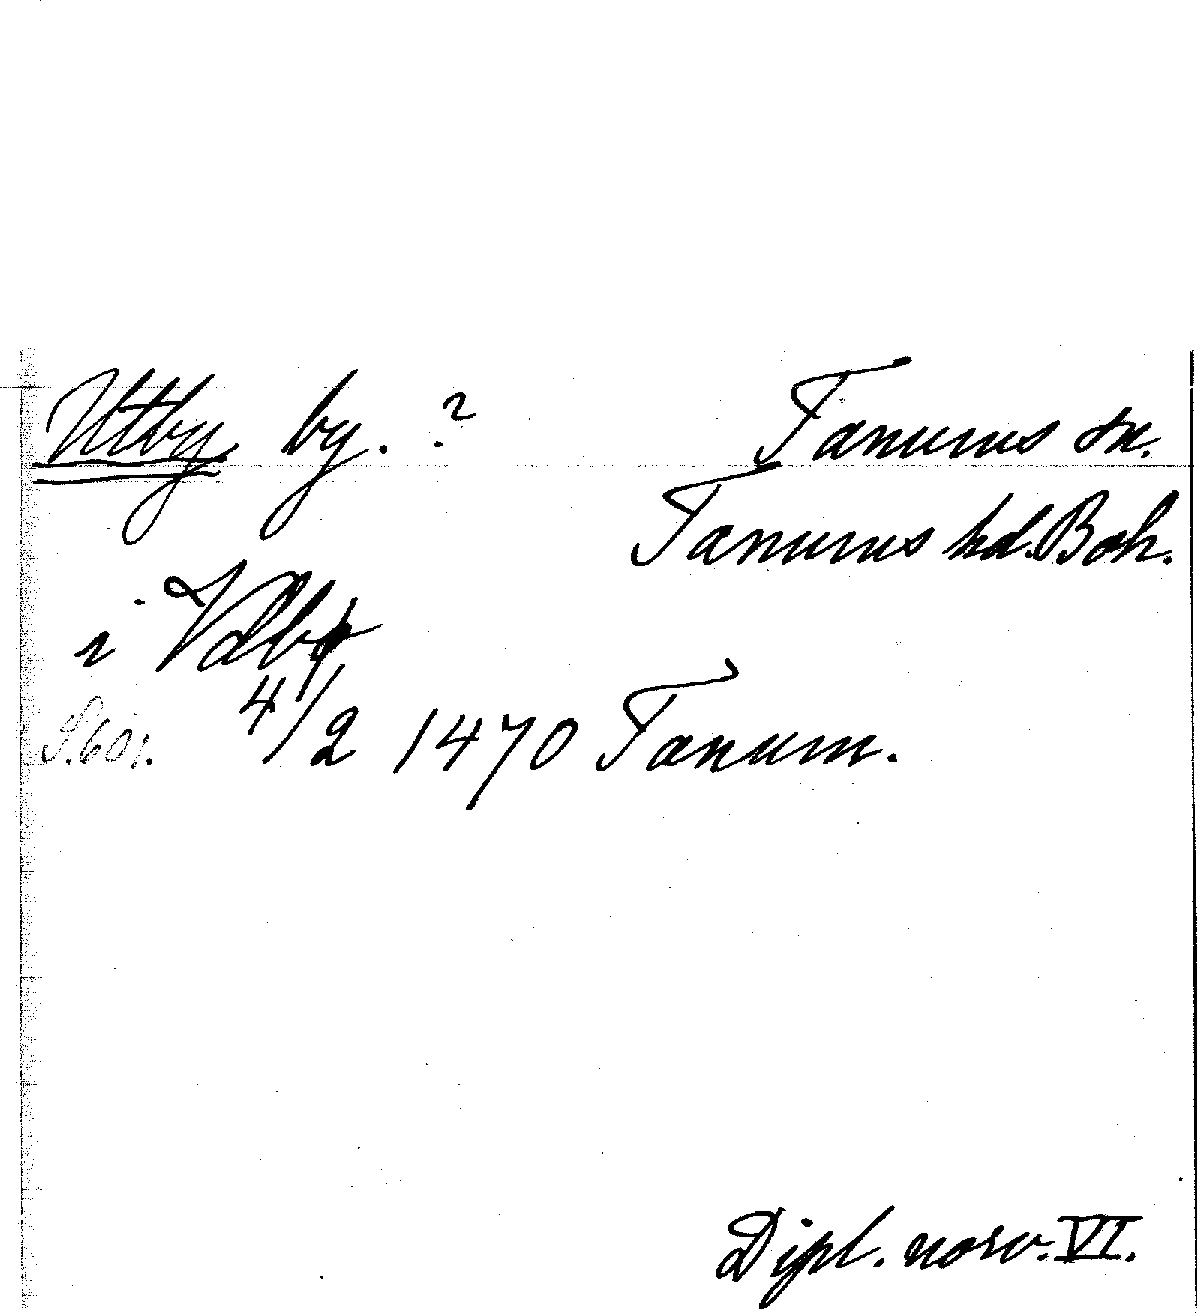 Utby by. ? Tanums sn.
Tanums hd. Boh.
i Vdby
S. 601. 4/2 1470 Tanum.
Dipl. norv. VI.